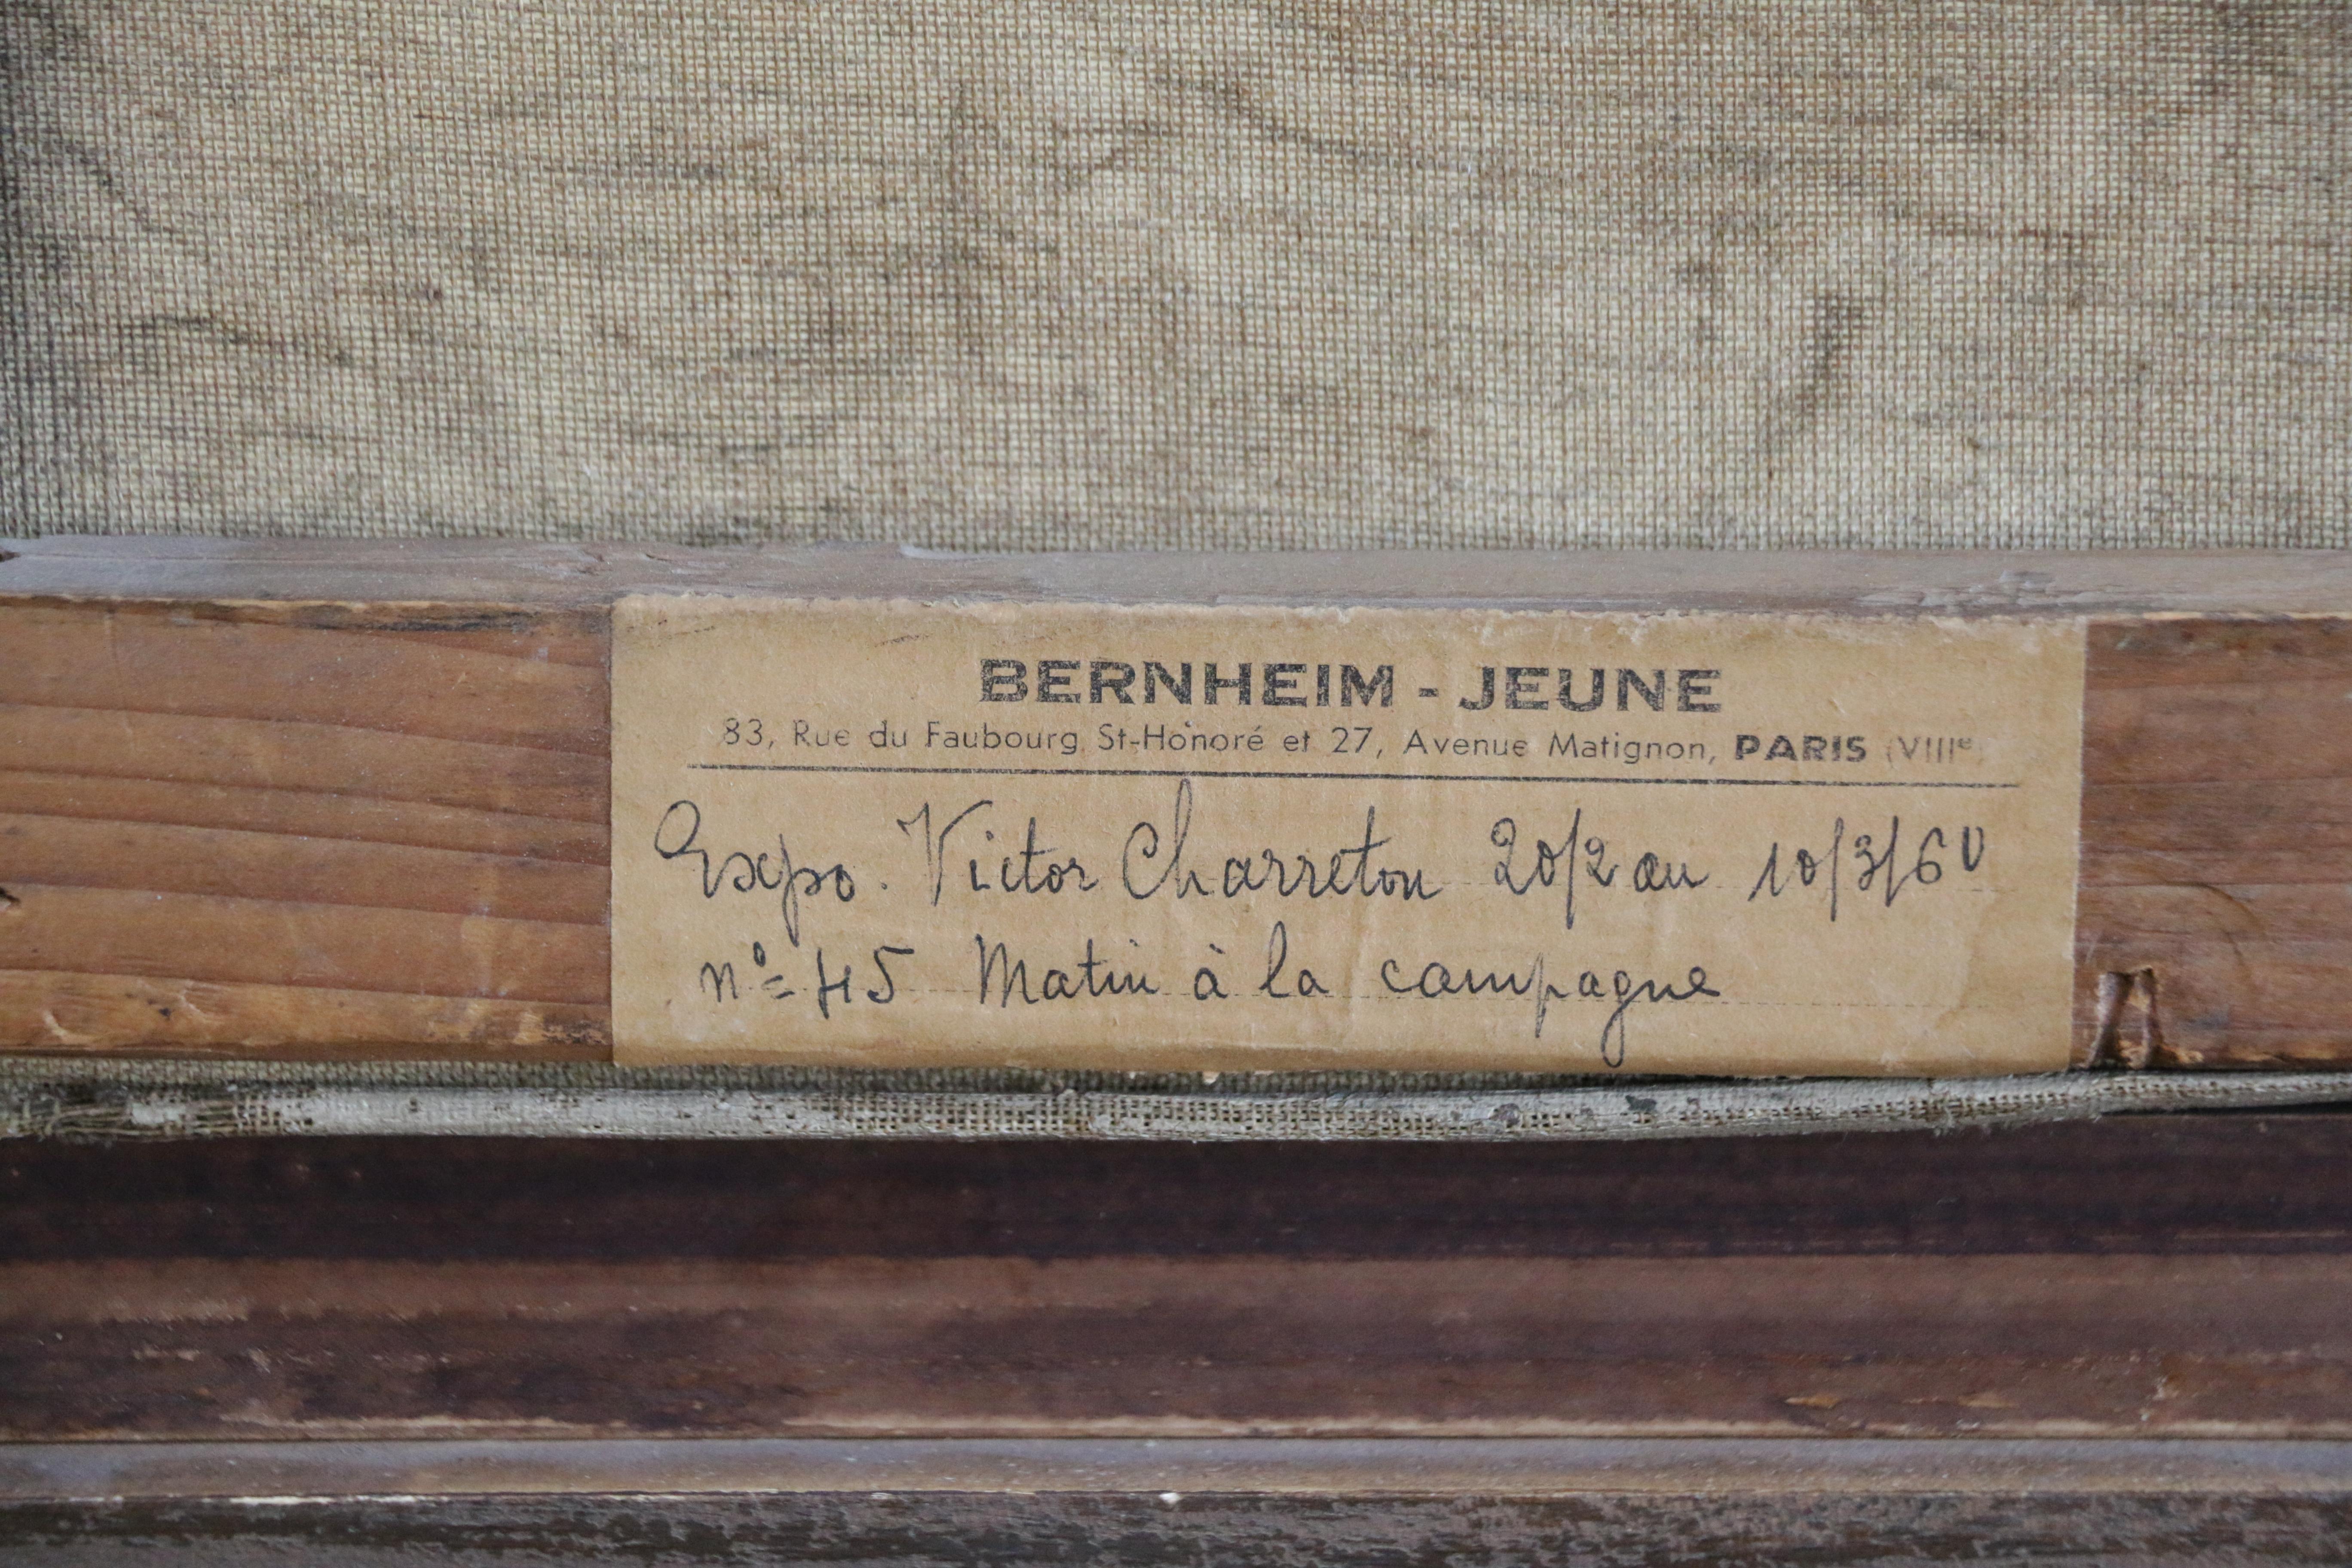 BERNHEIM - JEUNE
83, Rue du Faubourg St-Honoré et 27, Avenue Matignon, PARIS (VIIIe)
Expo. Victor Charreton 20/2 au 10/3/60
n° 45 Matin à la campagne